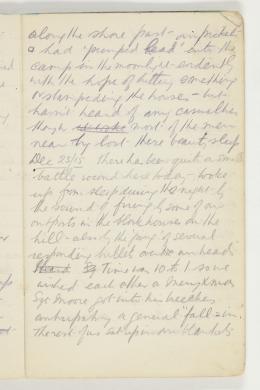 along the shore past our pickets
& had "pumped lead" into the
camp in the moonlight evidently
with the hope of hitting something
or stampeding the horses - but
haven't heard of any casualties
though most of the men
near by lost there beauty sleep
Dec 25/15 There has been quite a small
battle round here today - woke
up from sleep during the night by
the sound of firing by some of our
outposts in the block houses on the
hill - also by the "ping" of several
responding bullets over our heads
Time was 10 to 1 some
wished each other a Merry Xmas
Sgt Moore got into his breeches
anticipating a general "fall in".
The rest of us sat up in our blankets